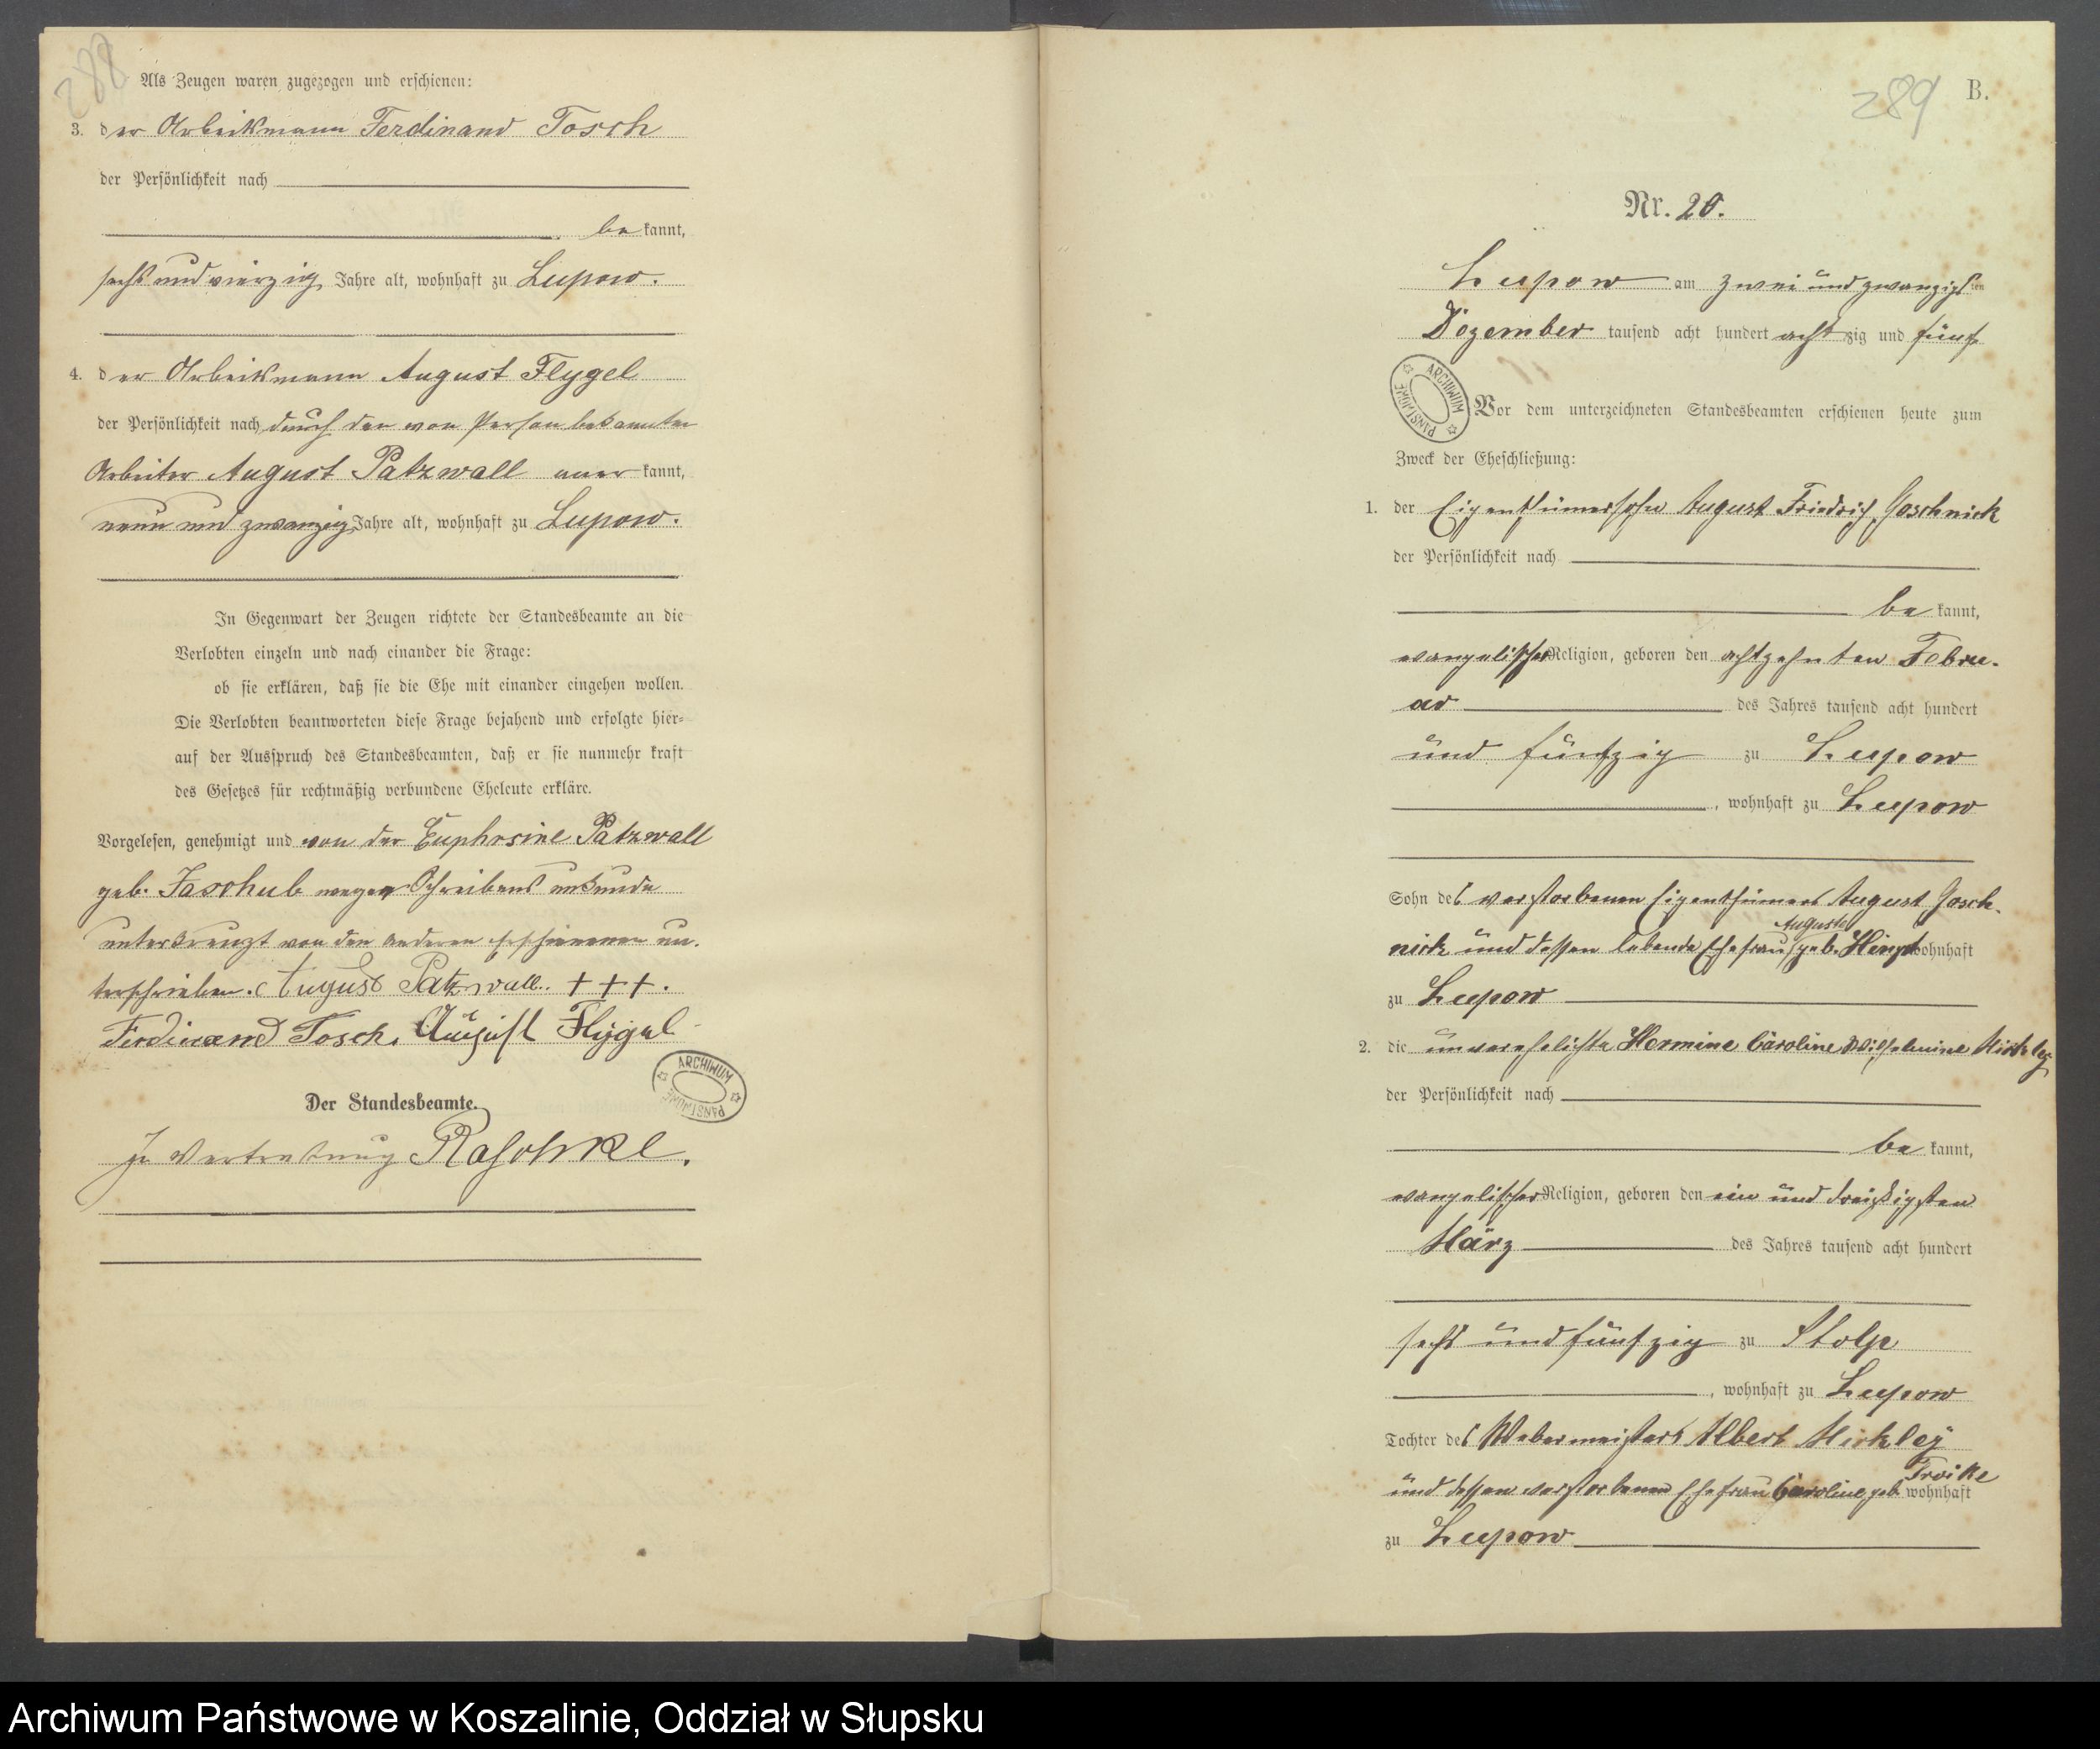 288
Als Zeugen waren zugezogen und erschienen:
3. der Arbeitsmann Ferdinand Tosch
der Persönlichkeit nach
be kannt,
sechs und vierzig Jahre alt, wohnhaft zu Lupow.
4. der Arbeitsmann August Flygel
der Persönlichkeit nach durch den von Person bekannten
Arbeiter August Patzwall aner kannt,
neun und zwanzig Jahre alt, wohnhaft zu Lupow.
In Gegenwart der Zeugen richtete der Standesbeamte an die
Verlobten einzeln und nach einander die Frage:
ob sie erklären, daß sie die Ehe mit einander eingehen wollen.
Die Verlobten beantworteten diese Frage bejahend und erfolgte hier=
auf der Ausspruch des Standesbeamten, daß er sie nunmehr kraft
des Gesetzes für rechtmäßig verbundene Eheleute erkläre.
Vorgelesen, genehmigt und von der Euphrosine Patzwall
geb. Jaschub wegen Schreibens unkunde
unterkreuzt von den anderen erschienenen un-
terschrieben. August Patzwall. +++.
Ferdinand Tosch. August Flygel
Der Standesbeamte.
In Vertretung Raschke.
ARCHIWUM PAŃSTWOWE
289 B.
Nr. 20.
Lupow am zwei und zwanzigsten
Dezember tausend acht hundert achtzig und fünf
ARCHIWUM PAŃSTWOWE
Vor dem unterzeichneten Standesbeamten erschienen heute zum
Zweck der Eheschließung:
1. der Eigenthümersohn August Friedrich Goschnick
der Persönlichkeit nach
be kannt,
evangelischer Religion, geboren den achtzehnten Febru-
ar des Jahres tausend acht hundert
und fünfzig zu Lupow
, wohnhaft zu Lupow
Sohn des verstorbenen Eigenthümers August Gosch-
Auguste
nick und dessen lebende Ehefrau geb. wohnhaft
zu Lupow
2. die unverehelichte Hermine Caroline Wilhelmine Mirkley
der Persönlichkeit nach
be kannt,
evangelischer Religion, geboren den ein und dreißigsten
März des Jahres tausend acht hundert
sechs und fünfzig zu Stolp
, wohnhaft zu Lupow
Tochter des Webermeisters Albert Mirkley
Troike
und dessen verstorbenen Ehefrau Caroline geb. wohnhaft
zu Lupow
Archiwum Państwowe w Koszalinie, Oddział w Słupsku